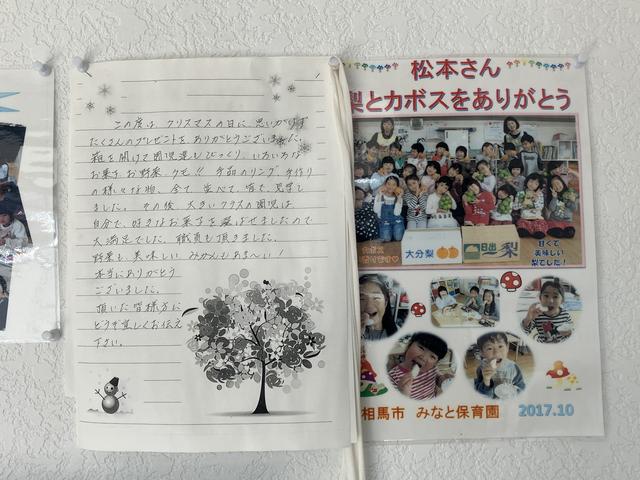 この度は、クリスマスの日に思いがけず
たくさんのプレゼントをありがとうございました。
箱を開けて園児達もびっくり、いろいろな
お菓子、お野菜、クモ!! 手品のリング、手作り
の様々な物、全て並べて、皆で、見学し
ました。その後、大きいクラスの園児は
自分で、好きなお菓子を選ばせましたので
大満足でした。職員も頂きました。
野菜も美味しい みかんもあま〜い!
本当にありがとう
ございました。
頂いた皆様方に
どうぞ宜しくお伝え
下さい。
松本さん
梨とカボスをありがとう
大分梨
日田梨
甘くて
美味しい
梨でした!
相馬市 みなと保育園
2017.10